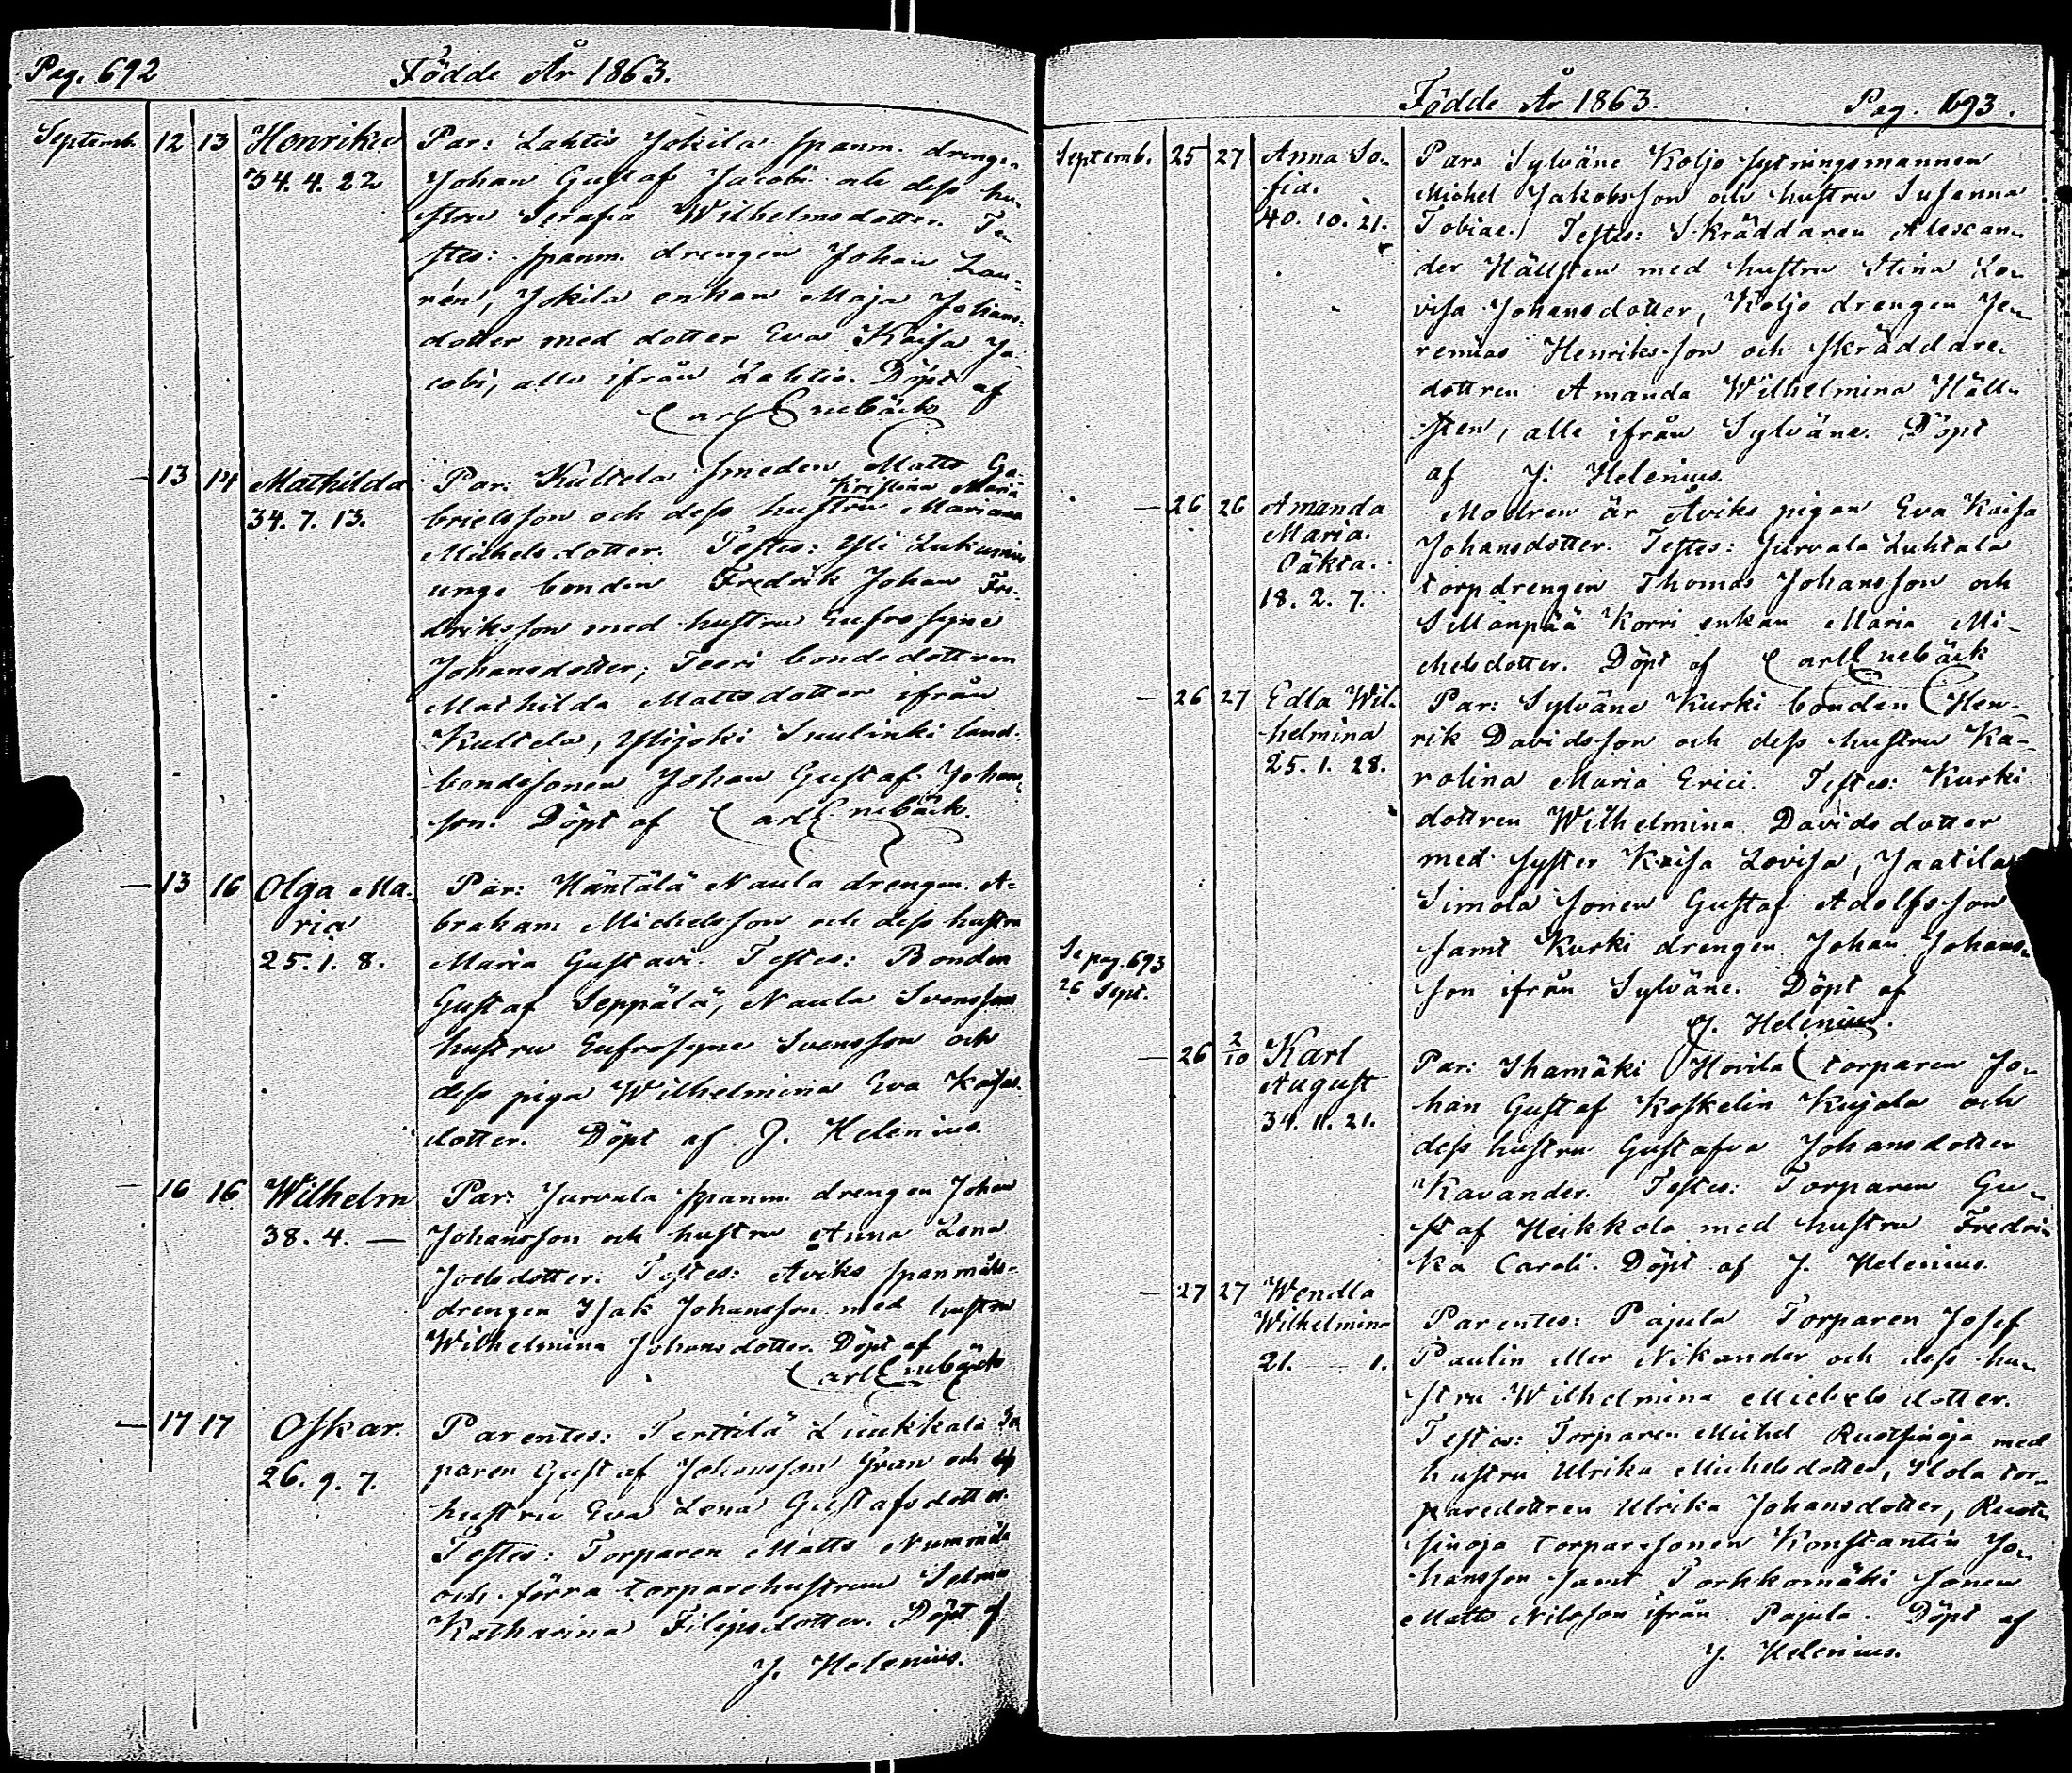 Pag. 692
Födde År 1863.
Septemb. 12 13 Henrika
34. 4. 22
Par: Lahtis Jokila spanm. drengen
Johan Gustaf Jacobi och dess hu-
stru Serafia Wilhelmsdotter. Te-
stes: spanm. drengen Johan Lau-
rén, Jokila enkan Maja Johans-
dotter med dotter Eva Kaisa Ja-
cobi, alle ifrån Lahtis. Döpt af
Carl Enebäck
— 13 14 Mathilda
34. 7. 13.
Par: Kultela smeden Matts Ga-
Kristina Maria
brielsson och dess hustru Mariana
Michelsdotter. Testes: Yli
unge bonden Fredrik Johan Fre-
driksson med hustru Eufrosyne
Johansdotter, Teeri bondedottren
Mathilda Mattsdotter ifrån
Kultela, Ylijoki Suulinki land-
bondesonen Johan Gustaf Johans-
son. Döpt af Carl Enebäck.
— 13 16 Olga Ma-
ria
25. 1. 8.
Par: Häntälä Naula drengen A-
braham Michelsson och dess hustru
Maria Gustavi. Testes: Bonden
Gustaf Seppälä, Naula Svensson
hustru Eufrosyne Svensson och
dess piga Wilhelmina Eva Kaisas
dotter. Döpt af J. Helenius.
— 16 16 Wilhelm
38. 4. —
Par: Jurvala spanm. drengen Johan
Johansson och hustru Anna Lena
Joelsdotter. Testes: Aviks spanmåls-
drengen Isak Johansson med hustru
Wilhelmina Johansdotter. Döpt af
Carl Enebäck
— 17 17 Oskar.
26. 9. 7.
Parentes: Terttilä Liukkala tor
paren Gustaf Johansson Gran och
hustru Eva Lena Gustafsdotter.
Testes: Torparen Matts Nummila
och förra torparehustrun Selma
Katharina Filipsdotter. Döpt af
J. Helenius.
Födde År 1863.
Pag. 693.
Septemb. 25 27 Anna So-
fia.
40. 10. 21.
Par: Sylväne Koljo sytningsmannen
Michel Jakobsson och hustru Susanna
Tobiae. Testes: Skräddaren Alexan-
der Hällsten med hustru Stina Lo-
visa Johansdotter, Koljo drengen Je-
remias Henriksson och skräddare
dottren Amanda Wilhelmina Häll-
sten, alle ifrån Sylväne. Döpt
af J. Helenius.
— 26 26 Amanda
Maria.
Oäkta.
18. 2. 7.
Modren är Aviks pigan Eva Kaisa
Johansdotter. Testes: Jurvala Luhtala
torpdrengen Thomas Johansson och
Sillanpää Korri enkan Maria Mi-
chelsdotter. Döpt af Carl Enebäck
— 26 27 Edla Wil-
helmina
25. 1. 28.
Par: Sylväne Kurki bonden Hen-
rik Davidsson och dess hustru Ka-
rolina Maria Erici. Testes: Kurki
dottren Wilhelmina Davidsdotter
med syster Kaisa Lovisa, Jaatila
Simola sonen Gustaf Adolfsson
samt Kurki drengen Johan Johans-
son ifrån Sylväne. Döpt af
J. Helenius.
Se pag. 693
26 Sept.
— 26 2/10 Karl
August
34. 11. 21.
Par: Ihamäki Hovila torparen Jo-
han Gustaf Koskelin Kujala och
dess hustru Gustafva Johansdotter
Kavander. Testes: Torparen Gu-
staf Heikkola med hustru Fredri-
ka Caroli. Döpt af J. Helenius.
— 27 27 Wendla
Wilhelmina
21. — 1.
Parentes: Pajula Torparen Josef
Paulin eller Nikander och dess hu-
stru Wilhelmina Michelsdotter.
Testes: Torparen Michel Ruotsinoja med
hustru Ulrika Michelsdotter, Ilola tor-
paredottren Ulrika Johansdotter, Ruot-
sinoja torparesonen Konstantin Jo-
hansson samt Porkkomäki sonen
Matts Nilsson ifrån Pajula. Döpt af
J. Helenius.